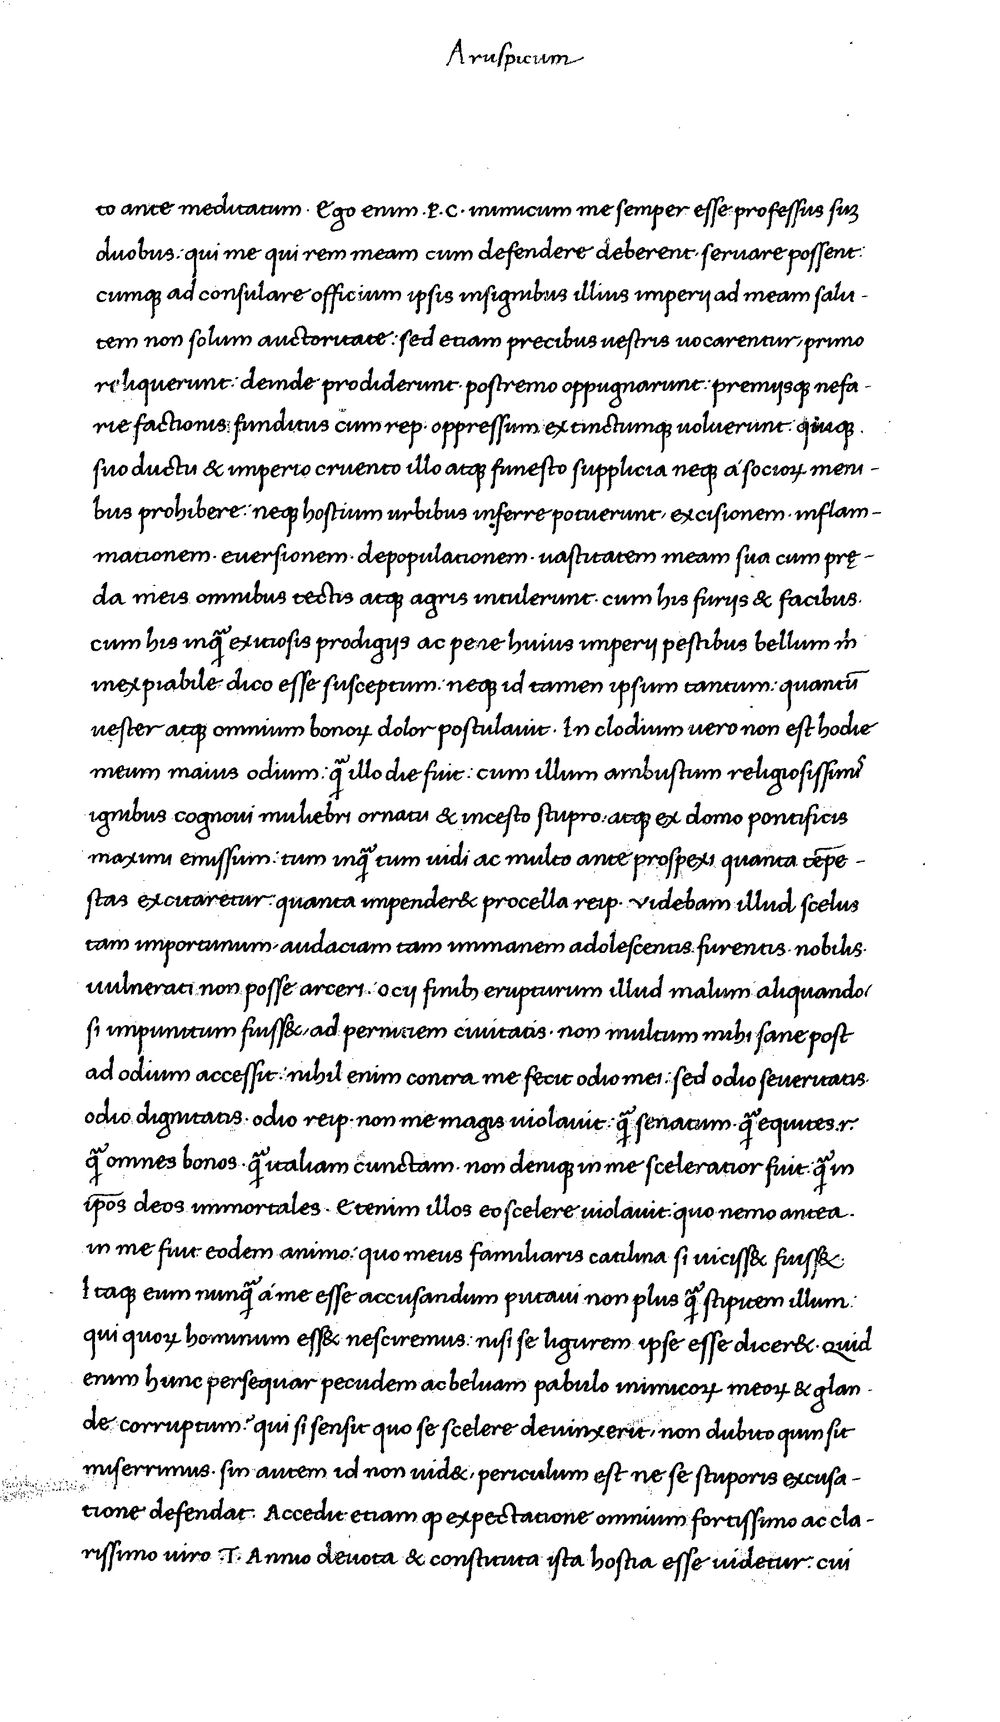 Aruspicum
to ante meditatum · Ego enim .P.C. inimicum me semper esse professus suꝫ
duobus: qui me qui rem meam cum defendere deberent· seruare possent:
cumqꝫ ad consulare officium ipsis insignibus illius imperij ad meam salu-
tem non solum auctoritate: sed etiam precibus uestris uocarentur, primo
reliquerunt: deinde prodiderunt· postremo oppugnarunt: premijsqꝫ nefa-
rie factionis funditus cum rep· oppressum extinctumqꝫ uoluerunt: quiqꝫ .
suo ductu & imperio cruento illo atqꝫ funesto supplicia neqꝫ á socioꝝ meni-
bus prohibere: neqꝫ hostium urbibus inferre potuerunt, excisionem · inflam-
mationem · euersionem · depopulationem · uastitatem meam sua cum prę-
da meis omnibus tectis atqꝫ agris intulerunt· cum his furijs & facibus·
cum his inqͣꝫ exitiosis prodigijs ac pene huius imperij pestibus bellum m̄
inexpiabile dico esse susceptum: neqꝫ id tamen ipsum tantum: quantū
uester atqꝫ omnium bonoꝝ dolor postulauit· In clodium uero non est hodie
meum maius odium: qͣꝫ illo die fuit: cum illum ambustum religiosissimis
ignibus cognoui muliebri ornatu & incesto stupro: atqꝫ ex domo pontificis
maximi emissum: tum inqͣꝫ tum uidi ac multo ante prospexi quanta tēpe-
stas excitaretur: quanta impender& procella reip· videbam illud scelus
tam importunum, audaciam tam immanem adolescentis furentis · nobilis·
uulnerati non posse arceri: ocij finibꝫ erupturum illud malum aliquando/
si impunitum fuiss&, ad perniciem ciuitatis · non multum mihi sane post
ad odium accessit: nihil enim contra me fecit odio mei: sed odio seueritatis·
odio dignitatis · odio reip· non me magis uiolauit: qͣꝫ senatum · qͣꝫ equites.r.
qͣꝫ omnes bonos · qͣꝫ italiam cunctam · non deniqꝫ in me sceleratior fuit: qͣꝫ in
ip̄os deos immortales · Etenim illos eo scelere uiolauit: quo nemo antea .
in me fuit eodem animo: quo meus familiaris catilina si uiciss& fuiss&:
Itaqꝫ eum nunqͣꝫ á me esse accusandum putaui non plus qͣꝫ stipitem illum:
qui quoꝝ hominum ess& nesciremus: nisi se ligurem ipse esse dicer& · quid
enim hunc persequar pecudem ac beluam pabulo inimicoꝝ meoꝝ & glan-
de corruptum: qui si sensit quo se scelere deuinxerit, non dubito quin sit
miserrimus · sin autem id non uid&, periculum est ne se stuporis excusa-
tione defendat: Accedit etiam ꝙ expectatione omnium fortissimo ac cla-
rissimo uiro .T. Annio deuota & constituta ista hostia esse uidetur: cui